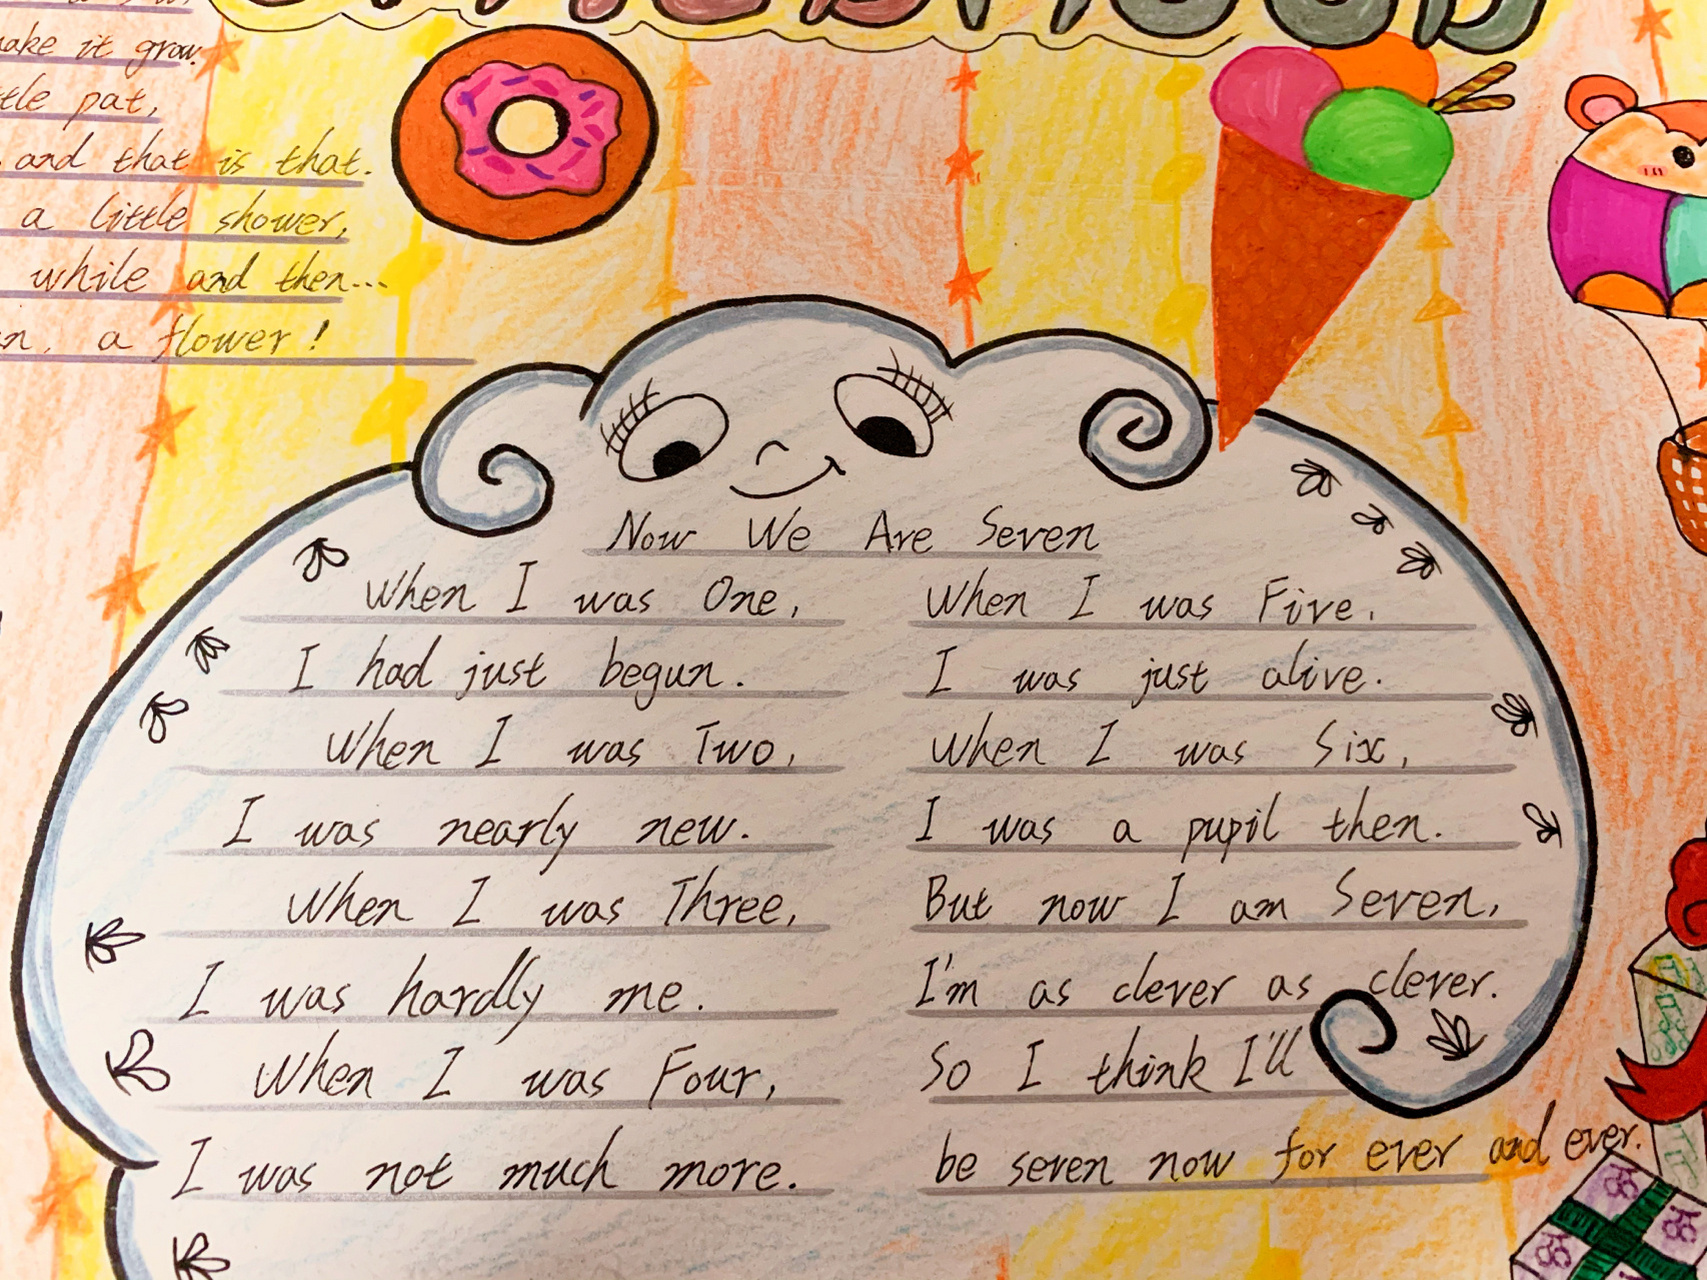 make it grow.
pat,
and that is that.
a little shower,
while and then...
a flower!
Now We Are Seven
When I was One,
I had just begun.
When I was Two,
I was nearly new.
When I was Three,
I was hardly me.
When I was Four,
I was not much more.
When I was Five,
I was just alive.
When I was Six,
I was a pupil then.
But now I am Seven,
I'm as clever as clever.
So I think I'll
be seven now for ever and ever.